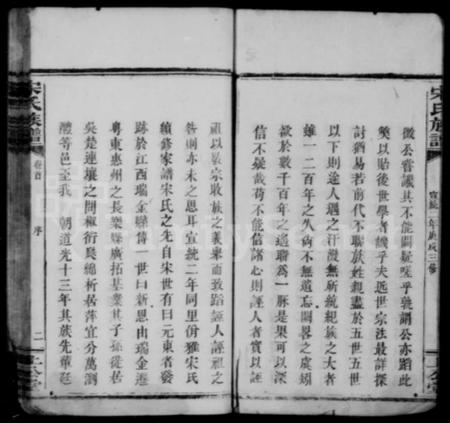 宋氏族譜
宣統二年庚戌三修
微公嘗議其不能闕疑嗟乎孰謂公亦蹈此
獘以貽後世學者譏乎夫遠世宗法最詳探
討猶易若前代不聯族姓親盡於五世五世
以下則途人遇之汗漫無所統親族之大者
雖一二百年之久尚不無遺忘闕畧之虞矧
欲於數千百年之遙聯為一脉是果可以深
信不疑哉苟不能信諸心則誣人者實以誣
祖以義宗收族之義舉而致蹈誣人誣祖之
咎則亦未之思耳宣統二年同里併雅宋氏
續修家譜宋氏之先自宋世有曰元東者發
跡於江西瑞金縣傳 世曰新恩由瑞金遷
粵東惠州之長樂縣廣拓基業其子孫徙居
吳楚連壤之間極衍晜緜析居萍宜分萬瀏
醴等邑至我 朝道光十三年其族先輩莛
宋氏族譜
卷首
序
二